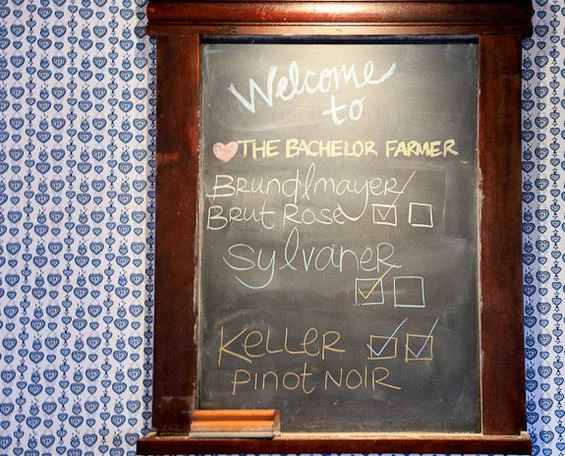 Welcome
to
THE BACHELOR FARMER
Brundlmayer
Brut Rosé
Sylvaner
Keller
Pinot Noir